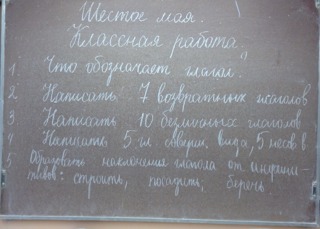 Шестое мая.
Классная работа
1 Что обозначает глагол?
2 Написать 7 возвратных глаголов
3 Написать 10 безличных глаголов
4 Написать 5 гл. соверш. вида, 5 несов в
5 Образовать наклонения глагола от инфини-
тивов: строить, посадить, беречь